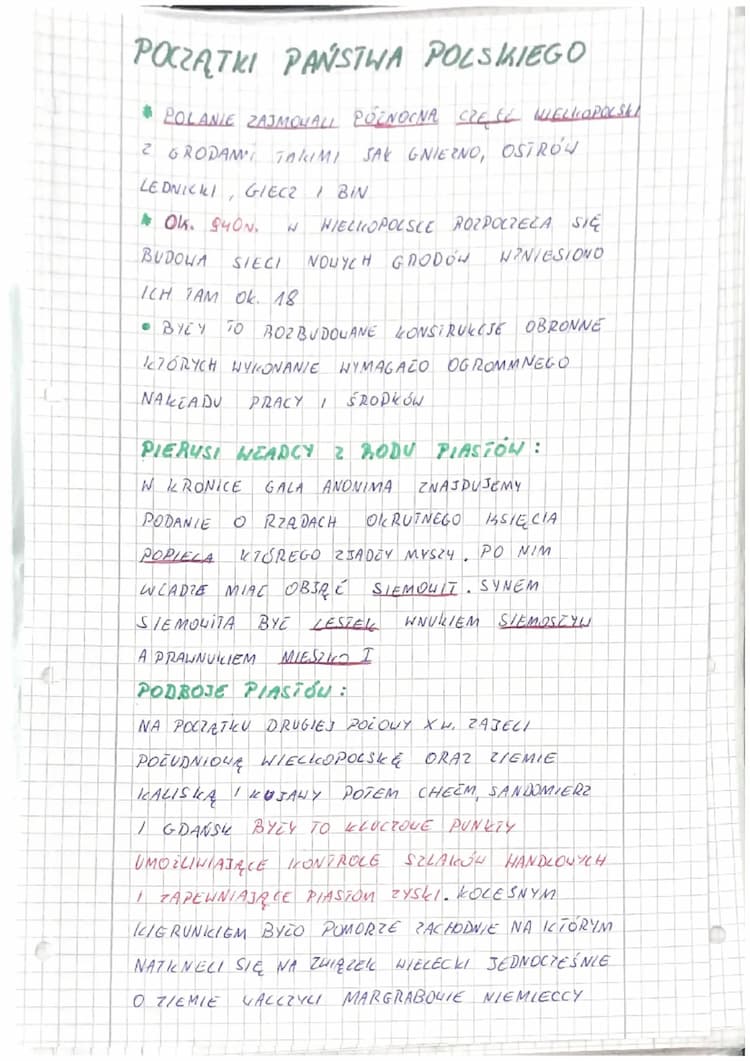 POCZĄTKI PAŃSTWA POLSKIEGO
* POLANIE ZAJMOWALI PÓŁNOCNĄ CZĘŚĆ WIELKOPOLSKI
Z GRODAMI TAKIMI JAK GNIEZNO, OSTRÓW
LEDNICKI, GIECZ I BIN
* OK. 940R. W WIELKOPOLSCE ROZPOCZĘŁA SIĘ
BUDOWA SIECI NOWYCH GRODÓW WZNIESIONO
ICH TAM OK. 18
• BYŁY TO ROZBUDOWANE KONSTRUKCJE OBRONNE
KTÓRYCH WYKONANIE WYMAGAŁO OGROMMNEGO
NAKŁADU PRACY I ŚRODKÓW
PIERWSI WŁADCY Z RODU PIASTÓW:
W KRONICE GALA ANONIMA ZNAJDUJEMY
PODANIE O RZĄDACH OKRUTNEGO KSIĘCIA
POPIELA KTÓREGO ZJADŁY MYSZY. PO NIM
WŁADZE MIAŁ OBJĄĆ SIEMOWIT. SYNEM
SIEMOWITA BYŁ LESTEK WNUKIEM SIEMOSZYW
A PRAWNUKIEM MIESZKO I
PODBOJE PIASTÓW:
NA POCZĄTKU DRUGIEJ POŁOWY X W. ZAJELI
POŁUDNIOWĄ WIELKOPOLSKĘ ORAZ ZIEMIE
KALISKĄ I KUJAWY POTEM CHEŁM, SANDOMIERZ
I GDAŃSK BYŁY TO KLUCZOWE PUNKTY
UMOŻLIWIAJĄCE KONTROLE SZLAKÓW HANDLOWYCH
I ZAPEWNIAJĄCE PIASTOM ZYSKI. KOLEŚNYM
KIERUNKIEM BYŁO POMORZE ZACHODNIE NA KTÓRYM
NATKNELI SIĘ NA ZWIĄZEK WIELECKI JEDNOCZEŚNIE
O ZIEMIE WALCZYLI MARGRABOWIE NIEMIECCY